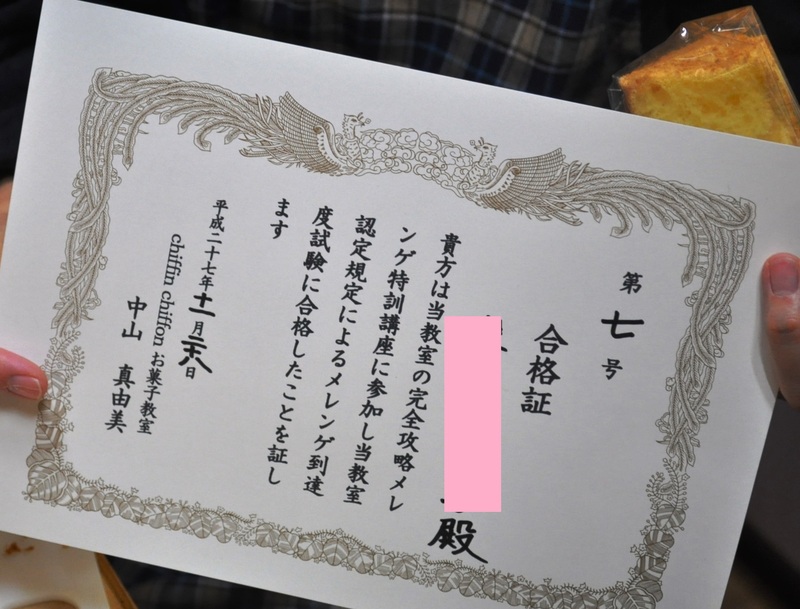 第七号
合格証
殿
貴方は当教室の完全攻略メレ
ンゲ特訓講座に参加し当教室
認定規定によるメレンゲ到達
度試験に合格したことを証し
ます
平成二十七年十一月二十八日
chiffin chiffon お菓子教室
中山 真由美